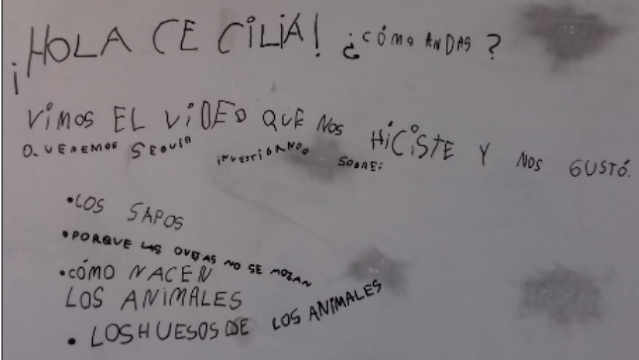 ¡HOLA CECILIA! ¿CÓMO ANDAS?
VIMOS EL VIDEO QUE NOS HICISTE Y NOS GUSTÓ.
QUEREMOS SEGUIR INVESTIGANDO SOBRE:
•LOS SAPOS
•PORQUE LAS OVEJAS NO SE MOJAN
•CÓMO NACEN
LOS ANIMALES
• LOS HUESOS DE LOS ANIMALES